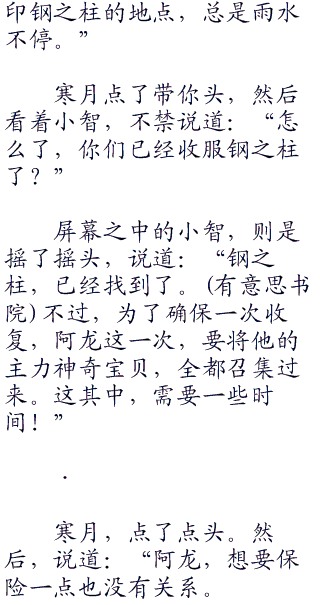 印钢之柱的地点，总是雨水
不停。”
寒月点了带你头，然后
看着小智，不禁说道：“怎
么了，你们已经收服钢之柱
了？”
屏幕之中的小智，则是
摇了摇头，说道：“钢之
柱，已经找到了。(有意思书
院)不过，为了确保一次收
复，阿龙这一次，要将他的
主力神奇宝贝，全都召集过
来。这其中，需要一些时
间！”
.
寒月，点了点头。然
后，说道：“阿龙，想要保
险一点也没有关系。